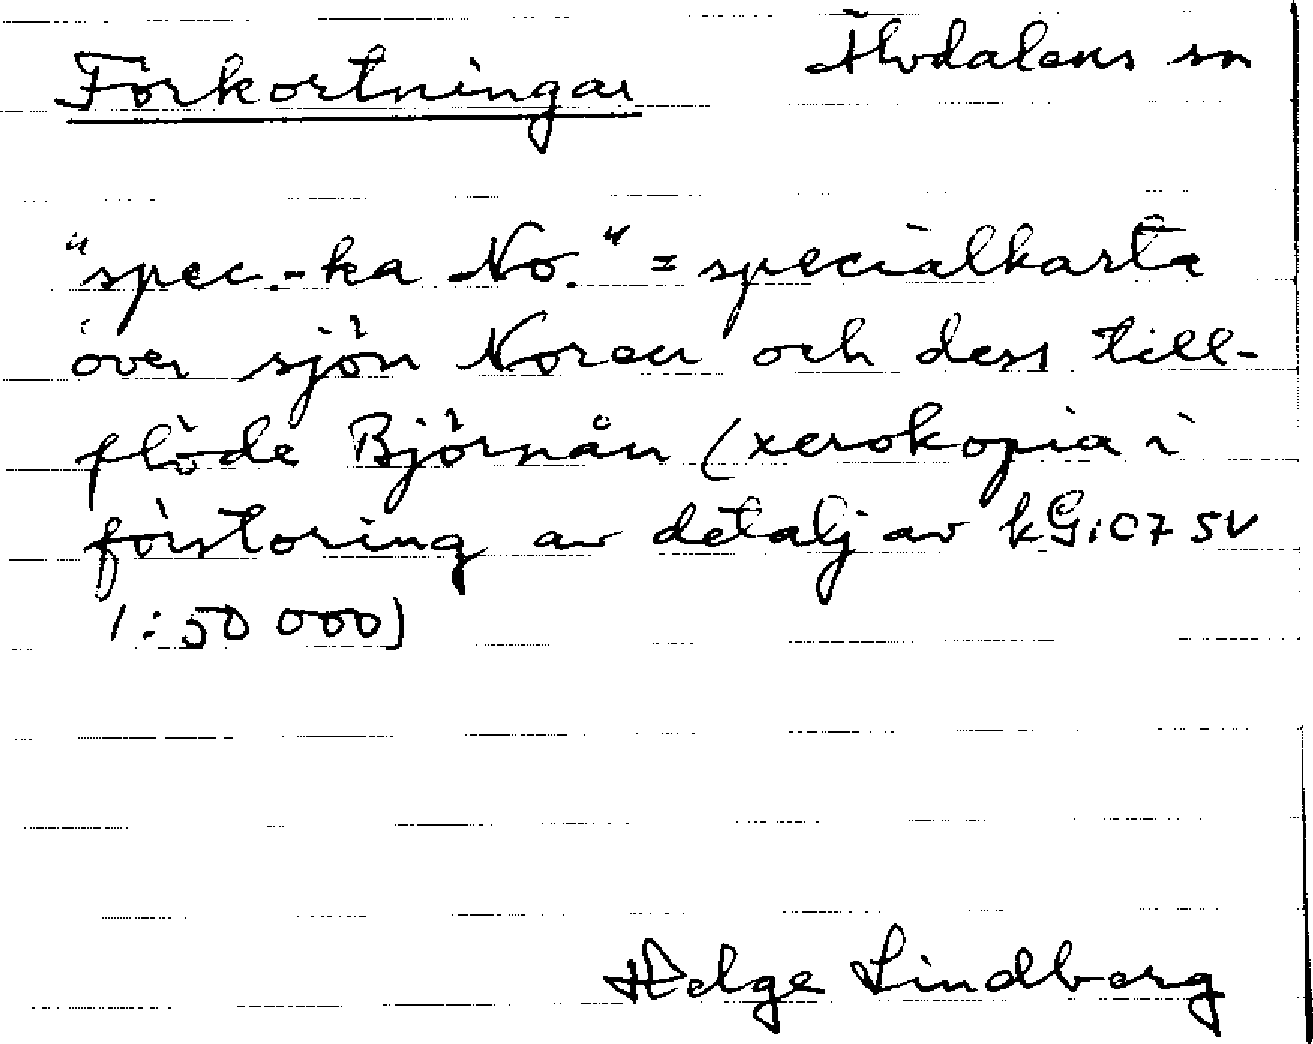 Förkortningar
Älvdalens sn
"spec.-ka No." = specialkarta
över sjön Noren och dess till-
flöde Björnån (xerokopia i
förstoring av detalj av kGi 07 SV
1:50 000)
Helge Lindberg